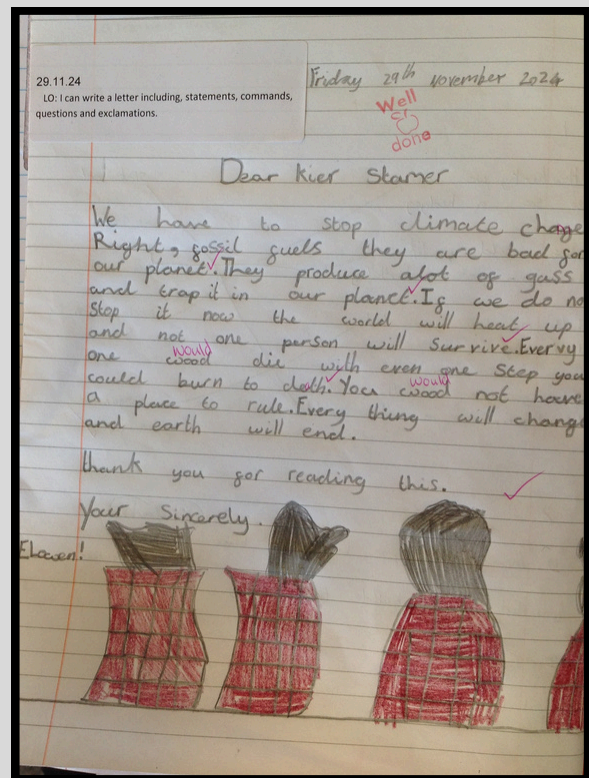 29.11.24
LO: I can write a letter including, statements, commands,
questions and exclamations.
Friday 29th November 2024
Well
done
Dear Kier Stamer
We have to stop climate change
Right, fossil fuels they are bad for
our planet. They produce alot of gass
and trap it in our planet. If we do no
Stop it now the world will heat up
and not one person will Survive. Everyy
would would
one wood die with even one Step you
could burn to deth. You wood not have
a place to rule. Every thing will change
and earth will end.
thank you for reading this.
Your Sincerely.
Elowen!